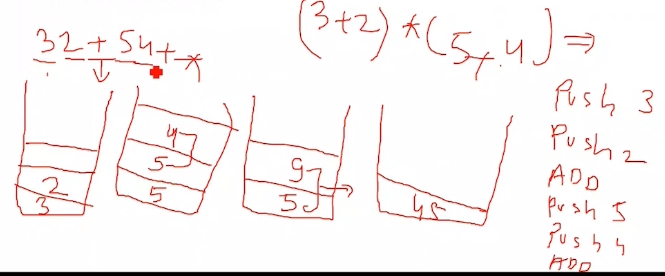 (3+2) * (5+4) ⇒
32+54+*
2
3
4
5
5
9
5
45
Push 3
Push 2
ADD
Push 5
Push 4
ADD